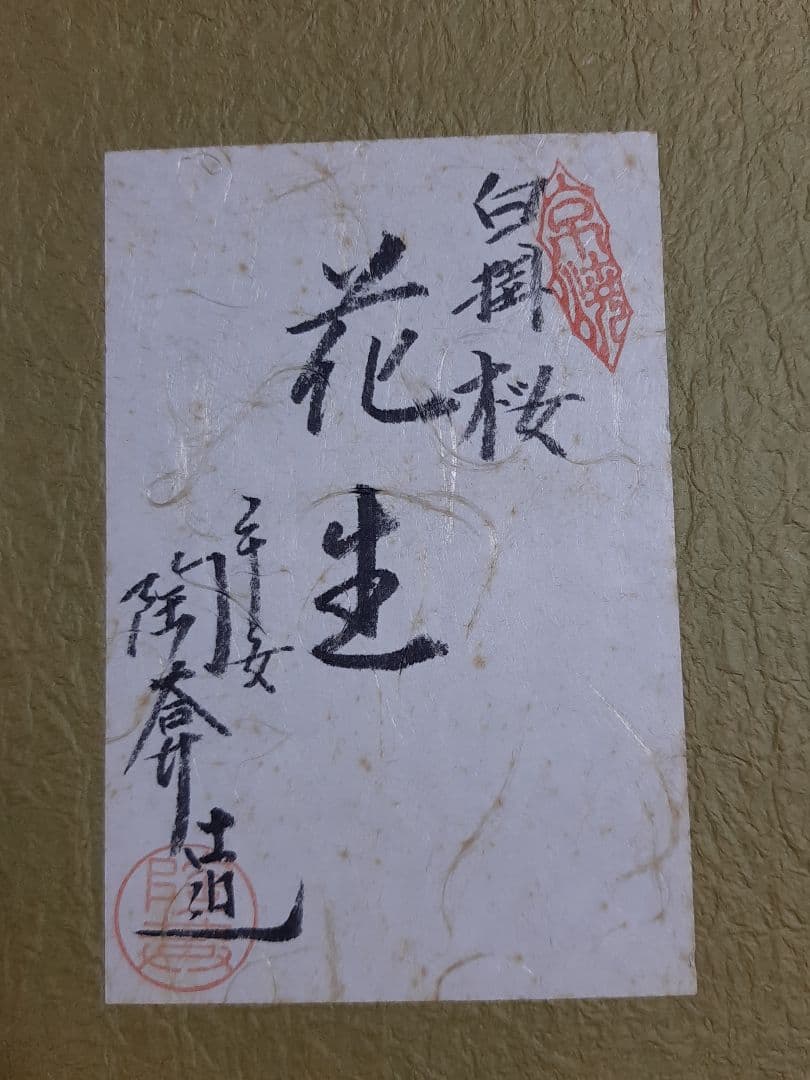 京焼
白掛桜
花生
平安
陶葊造